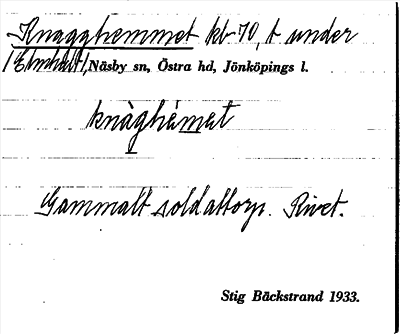 Knagghemmet kb 70, t under
/Elmhält/, Näsby sn, Östra hd, Jönköpings l.
knàghémet
Gammalt soldattorp. Rivet.
Stig Bäckstrand 1933.